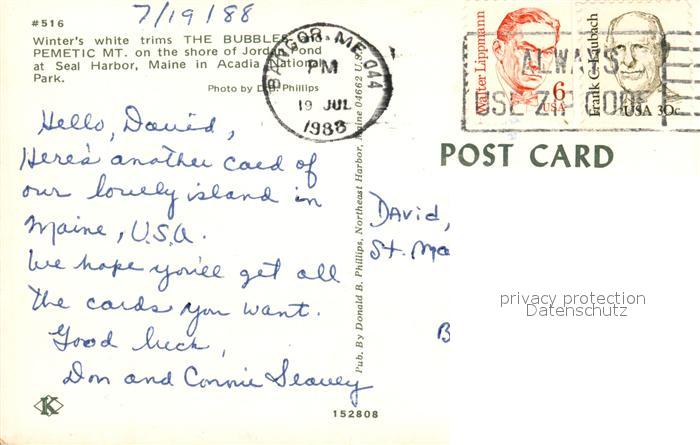 7/19/88
#516
Winter's white trims THE BUBBLES
PEMETIC MT. on the shore of Jordan Pond
at Seal Harbor, Maine in Acadia National
Park.
Photo by D.B. Phillips
BANGOR, ME 044
PM
19 JUL
1988
Walter Lippmann
6
USA
Frank C. Laubach
USA 30c
ALWAYS
USE ZIP CODE
POST CARD
Hello, David,
Here's another card of
our lovely island in
Maine, U.S.A.
We hope you'll get all
the cards you want.
Good luck,
Don and Connie Seavey
Pub. By Donald B. Phillips, Northeast Harbor, Maine 04662 U.S.
David,
St. Ma
B
privacy protection
Datenschutz
K
152808